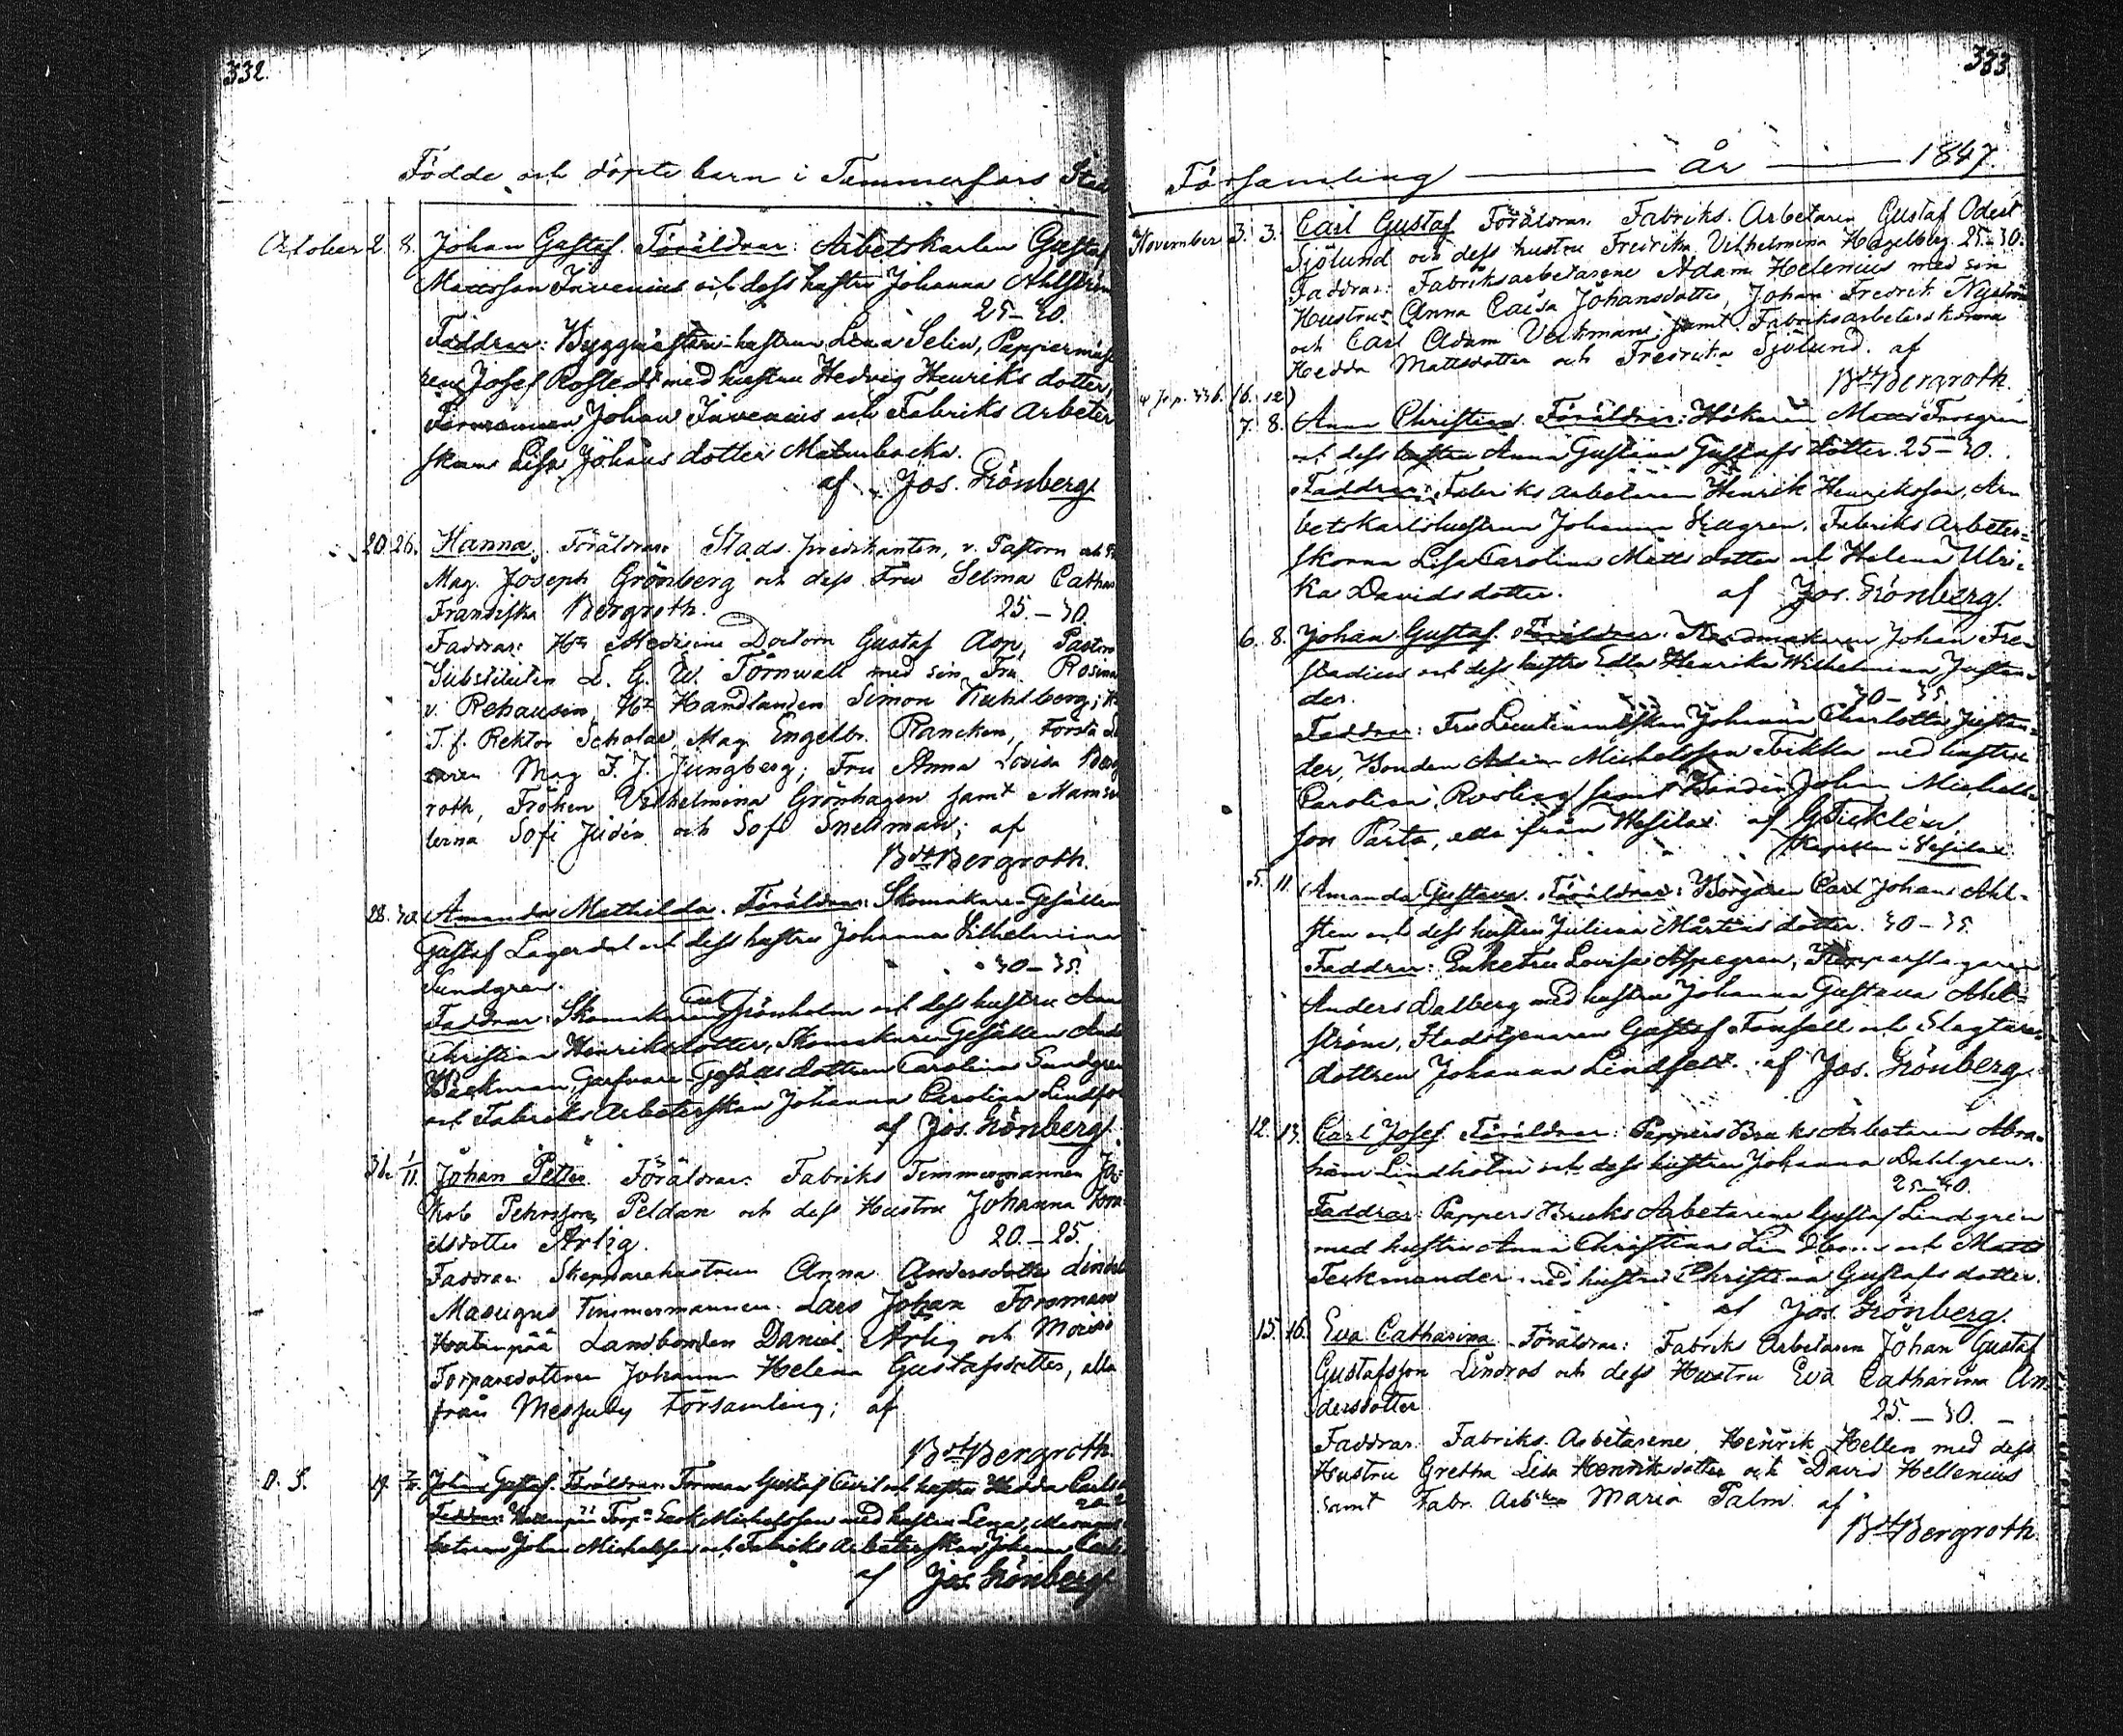 332.
Födde och döpte barn i Tammerfors Stads
October 2. 8. Johan Gustaf. Föräldrar: Arbetskarlen Gustaf
Mattsson Juvenius och dess hustru Johanna Ahlström
25-30.
Faddrar: Byggmästare-hustrun Lena Selin, Pappermåla
ren Josef Rosted med hustru Hedvig Henriks dotter,
Formannen Johan Juvenius och Fabriks Arbeter
skan Lisa Johans dotter
af Jos. Grönberg.
20. 26. Hanna. Föräldrar: Stads predikanten, v. Pastorn och
Mag. Joseph Grönberg och dess Fru Selma Catha
Fransiska Bergroth. 25.-30.
Faddrar: Hr Medicine Doctorn Gustaf Asp, Pastors
Substituten L. G. W. Törnwall med sin Fru Rosina
v. Rehausen, Hr Handlanden Simon Kuhlberg;
T. f. Rektor Scholae, Mag. Engelbr. Rancken, Första
Mag F. J. Ljungberg; Fru Anna Lovisa Berg
roth, Fröken Vilhelmina Grönhagen samt Mamse
lerna Sofi Judén och Sofi Snellman; af
Bdt Bergroth.
28. 30. Amanda Mathilda. Föräldrar: Skomakare-Gesällen
Gustaf Lagerdal och dess hustru Johanna Vilhelmina
30-35.
Sundgren.
Faddrar: Skomakaren Carl Grönholm och dess hustru Ann
Christina Henriksdotter, Skomakare Gesällen And
Bäckman, Garfvare-Gesälls dottren Carolina Sundgren
och Fabriks Arbeterskan Johanna Carolina Lindfor
af Jos. Grönberg.
31. 1/11. Johan Petter. Föräldrar: Fabriks Timmermannen Ja-
kob Pehrsson Peldan och dess Hustru Johanna
elsdotter Arlig. 20.-25.
Faddrar: Skepparehustrun Anna Andersdotter
Timmermannen Lars Johan Forsman
Hatanpää Landbonden Daniel Arlig och
Torparedottren Johanna Helena Gustafsdotter, alla
från Messuby Församling; af
Bdt Bergroth.
D. S. 19. Johan Gustaf. Föräldrar: Forman Gustaf och hustru Hedda Carls
Faddrar: Torp: Erik Michelsson med hustru Lena,
Johan Michelsson och Fabriks arbeterskan Johanna
af Jos. Grönberg.
333
Församling år 1847.
November 3. 3. Carl Gustaf Föräldrar: Fabriks. Arbetaren Gustaf Odert
Sjölund och dess hustru Fredrika Vilhelmina Hagelberg. 25-30.
Faddrar: Fabriksarbetarene Adam Helenius med sin
Hustru Anna Caisa Johansdotter, Johan Fredrik Nyström
och Carl Adam Verkman samt Fabriksarbeterskorna
Hedda Mattsdotter och Fredrika Sjölund. af
Bdt Bergroth.
p. 336. (6. 12)
7. 8. Anna Christina. Föräldrar: Hökaren Matts Forsgren
och dess hustru Anna Gustava Gustafs dotter. 25-30.
Faddrar: Fabriks arbetaren Henrik Henriksson, Ar-
betskarlshustrun Johanna Sillgren, Fabriks Arbeter-
skorna Lisa Carolina Matts dotter och Helena Ulri-
ka Davidsdotter. af Jos. Grönberg.
6. 8. Johan Gustaf. Föräldrar: Johan Fre-
stadius och dess hustru Edla Henrika Wilhelmina Justan-
der. 30-35
Faddrar: Fru Lieutenantskan Johanna Charlotta Justan-
der, Bonden Michelsson Tikka med hustru
Carolina Rosling samt Bonden Johan Michels-
son Parta, alla från Wesilax af G Ticklén
Kapellan i Vesilax
5. 11. Amanda Gustava. Föräldrar: Borgaren Carl Johan Ahl-
sten och dess hustru Juliana Mårtens dotter. 30-35.
Faddrar: Enkefru Lovisa Aspegren, Kopparslagaren
Anders Dalberg med hustru Johanna Gustava Ahl-
ström, Stadstjenaren Gustaf Fonsell och Slagtare-
dottren Johanna Lindfelt. af Jos. Grönberg.
12. 13. Carl Josef. Föräldrar: Pappers Bruks Arbetaren Abra-
ham Lindholm och dess hustru Johanna Dahlgren.
25-30.
Faddrar: Pappers Bruks Arbetarene Gustaf Lindgren
med hustru Anna Christina och Matts
Teckmander med hustru Christina Gustafs dotter.
af Jos. Grönberg.
15. 16. Eva Catharina. Föräldrar: Fabriks Arbetaren Johan Gustaf
Gustafsson Lindros och dess Hustru Eva Catharina An-
dersdotter 25.-30.-
Faddrar: Fabriks. Arbetarene Henrik Hellen med dess
Hustru Gretha Lisa Henriksdotter och David Hellenius
samt Fabr. Arbskan Maria Palm. af
Bdt Bergroth.